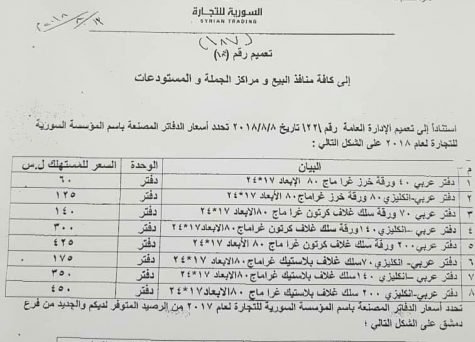 السورية للتجارة
SYRIAN TRADING
(١٨٧)
تعميم رقم (١٨٧)
إلى كافة منافذ البيع و مراكز الجملة و المستودعات
استناداً إلى تعميم الإدارة العامة رقم /٢٢١/ تاريخ ٢٠١٨/٨/٨ تحدد أسعار الدفاتر المصنعة باسم المؤسسة السورية
للتجارة لعام ٢٠١٨ على الشكل التالي :
م البيان الوحدة السعر للمستهلك ل.س
١ دفتر عربي ٤٠ ورقة خرز غرا ماج ٨٠ الإبعاد ١٧*٢٤ دفتر ٦٠
٢ دفتر عربي-انكليزي ٨٠ ورقة خرز غراماج ٨٠ الأبعاد ١٧*٢٤ دفتر ١٢٥
٣ دفتر عربي ٧٠ ورقة سلك غلاف كرتون غرا ماج ٨٠الابعاد ١٧*٢٤ دفتر ١٤٠
٤ دفتر عربي -انكليزي ١٤٠ورقة سلك غلاف كرتون غراماج ٨٠الابعاد ١٧*٢٤ دفتر ٣٠٠
٥ دفتر عربي ٢٠٠ ورقة سلك غلاف كرتون غراماج ٨٠ الأبعاد ١٧*٢٤ دفتر ٤٢٥
٦ دفتر عربي- انكليزي ٧٠سلك غلاف بلاستيك غراماج ٨٠الابعاد ١٧*٢٤ دفتر ١٧٥
٧ دفتر عربي –انكليزي ١٤٠سلك غلاف بلاستيك غراماج ٨٠الابعاد ١٧*٢٤ دفتر ٣٥٠
٨ دفتر عربي-انكليزي ٢٠٠ سلك غلاف بلاستيك غرا ماج ٨٠الابعاد ١٧*٢٤ دفتر ٤٥٠
تحدد أسعار الدفاتر المصنعة باسم المؤسسة السورية للتجارة لعام ٢٠١٧ من الرصيد المتوفر لديكم والجديد من فرع
دمشق على الشكل التالي :